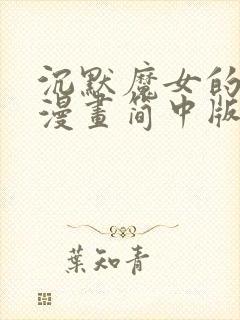 沉默魔女的
漫畫简中版
葉知青